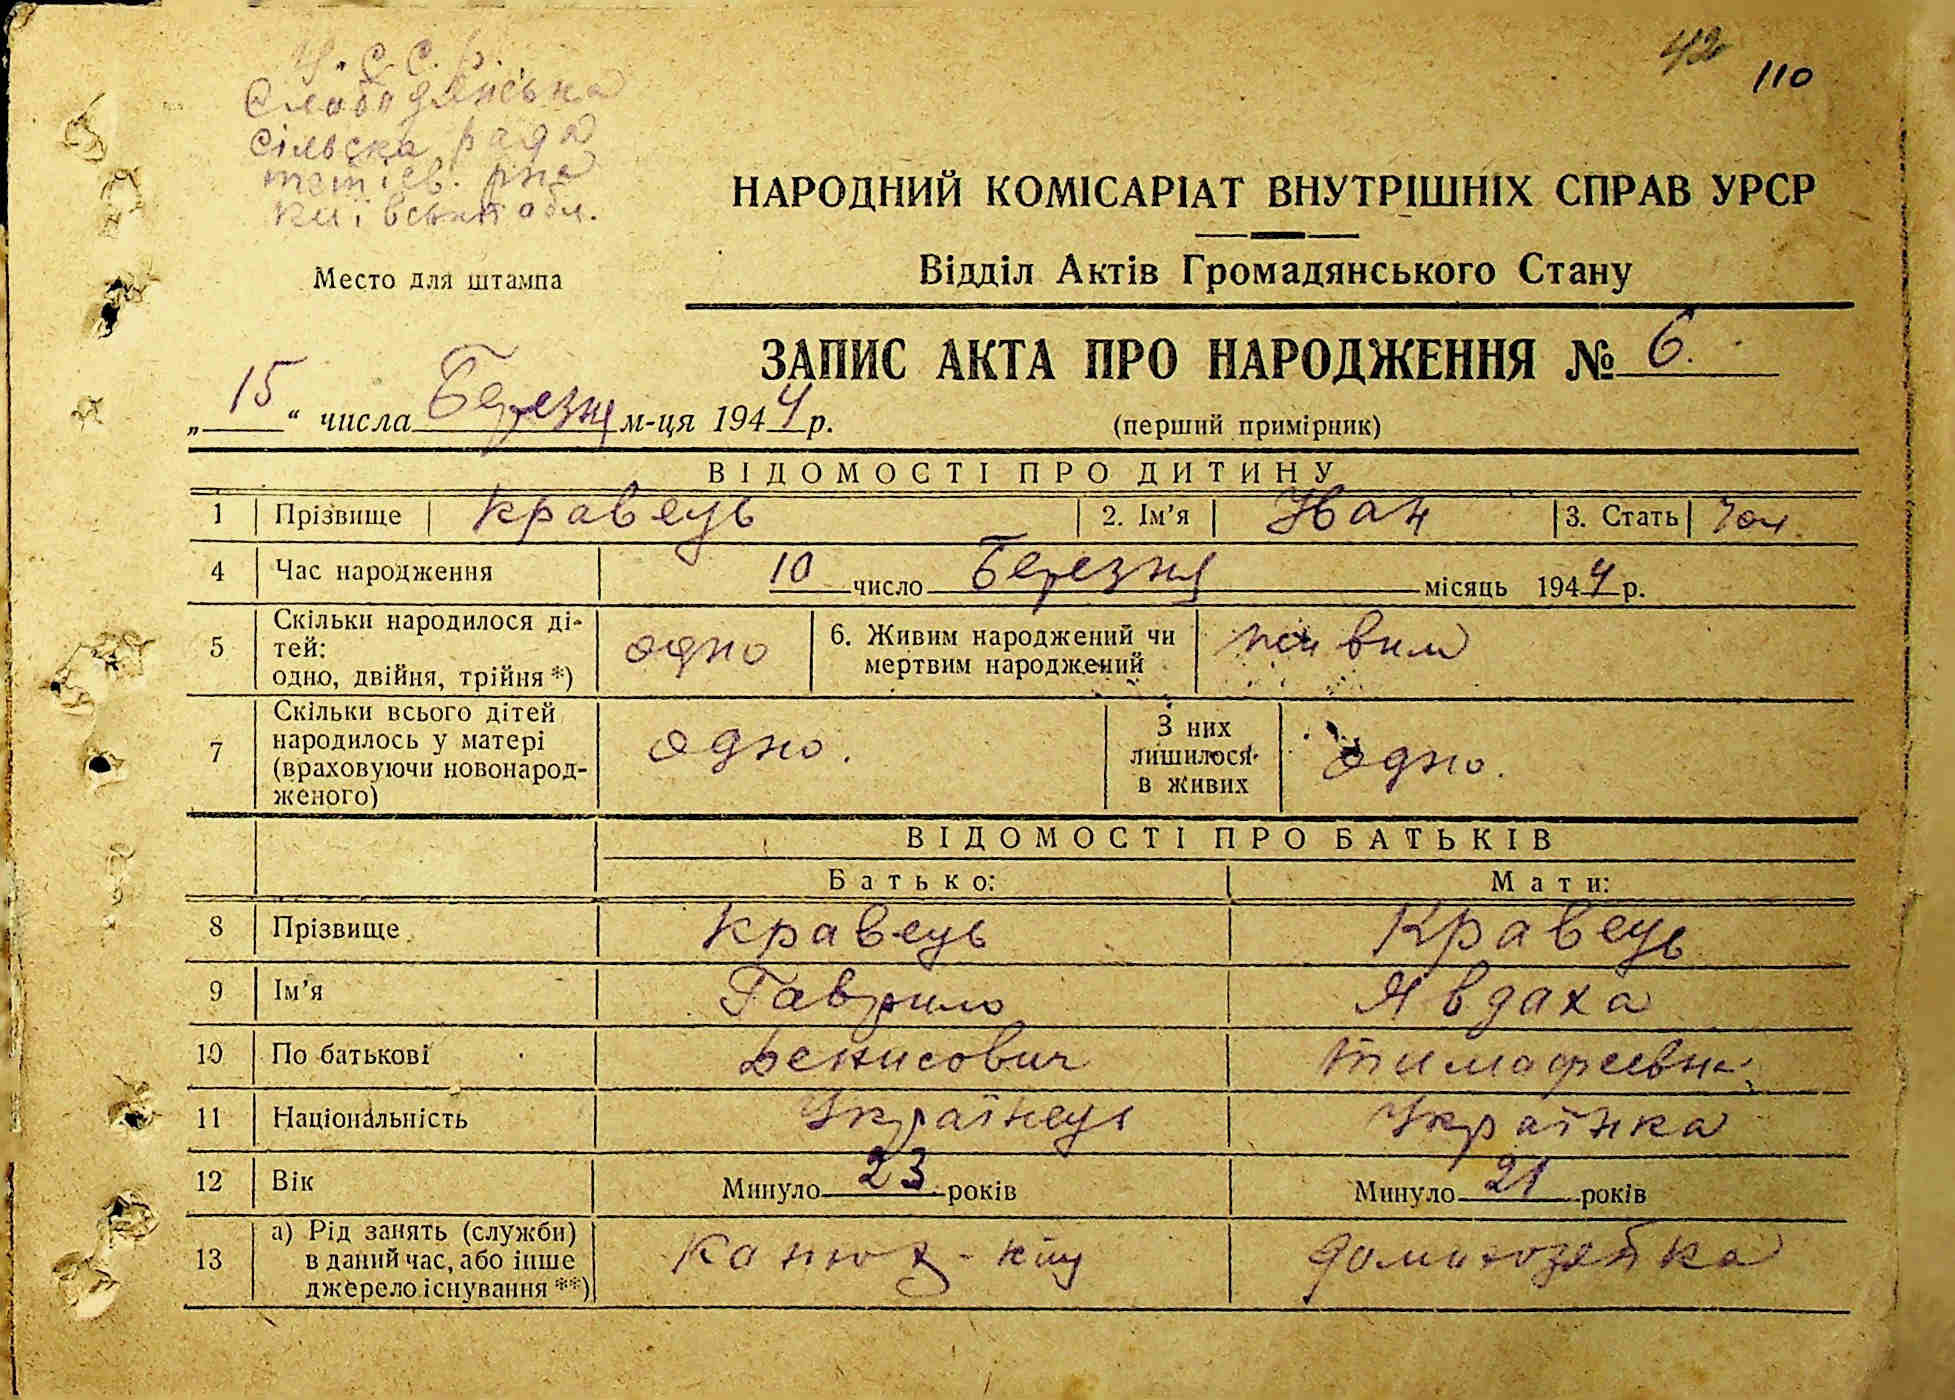 У.С.С.Р.
Слободянська
сільска рада
тетієв. р-на
київськой обл.
42
110
Место для штампа
НАРОДНИЙ КОМІСАРІАТ ВНУТРІШНІХ СПРАВ УРСР
Відділ Актів Громадянського Стану
ЗАПИС АКТА ПРО НАРОДЖЕННЯ № 6.
„15“ числа Березня м-ця 1944 р.
(перший примірник)
ВІДОМОСТІ ПРО ДИТИНУ
1 Прізвище Кравець 2. Ім'я Іван 3. Стать Чол.
4 Час народження 10 число Березня місяць 1944 р.
5 Скільки народилося ді-
тей:
одно, двійня, трійня *) одно 6. Живим народжений чи
мертвим народжений живим
7 Скільки всього дітей
народилось у матері
(враховуючи новонарод-
женого) одно. З них
лишилося
в живих одно.
ВІДОМОСТІ ПРО БАТЬКІВ
Батько: Мати:
8 Прізвище Кравець Кравець
9 Ім'я Гаврило Явдаха
10 По батькові Денисович Тимафеевна
11 Національність Українець Українка
12 Вік Минуло 23 років Минуло 21 років
13 а) Рід занять (служби)
в даний час, або інше
джерело існування **) домохозяйка